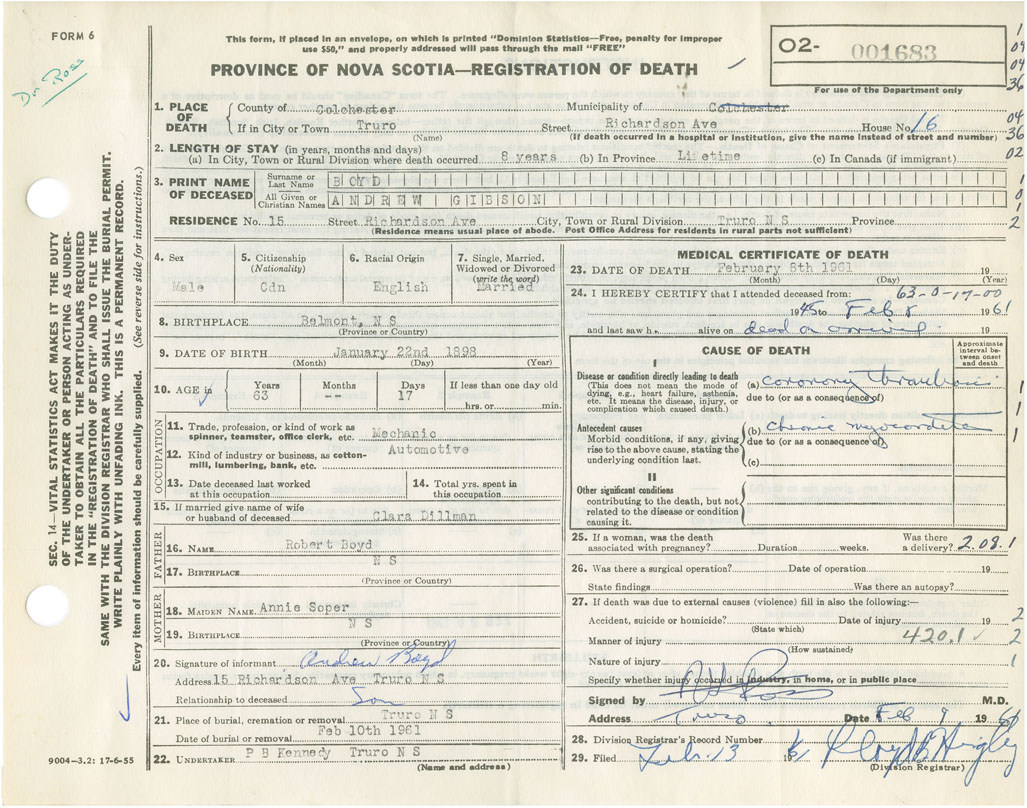 FORM 6
Dr. Ross
This form, if placed in an envelope, on which is printed "Dominion Statistics—Free, penalty for improper
use $50," and properly addressed will pass through the mail "FREE"
PROVINCE OF NOVA SCOTIA—REGISTRATION OF DEATH
O2- 001683
For use of the Department only
1. PLACE OF DEATH
County of Colchester Municipality of Colchester
If in City or Town Truro Street Richardson Ave House No. 16
(Name) (If death occurred in a hospital or institution, give the name instead of street and number)
2. LENGTH OF STAY (in years, months and days)
(a) In City, Town or Rural Division where death occurred 8 years (b) In Province Lifetime (c) In Canada (if immigrant)
3. PRINT NAME OF DECEASED
Surname or Last Name BOYD
All Given or Christian Names ANDREW GIBSON
RESIDENCE No. 15 Street Richardson Ave City, Town or Rural Division Truro N S Province
(Residence means usual place of abode. Post Office Address for residents in rural parts not sufficient)
4. Sex
Male
5. Citizenship
(Nationality)
Cdn
6. Racial Origin
English
7. Single, Married,
Widowed or Divorced
(write the word)
Married
8. BIRTHPLACE Belmont, N S
(Province or Country)
9. DATE OF BIRTH January 22nd 1898
(Month) (Day) (Year)
10. AGE in
Years 63
Months --
Days 17
If less than one day old
hrs. or min.
OCCUPATION
11. Trade, profession, or kind of work as
spinner, teamster, office clerk, etc. Mechanic
12. Kind of industry or business, as cotton-
mill, lumbering, bank, etc. Automotive
13. Date deceased last worked
at this occupation
14. Total yrs. spent in
this occupation
15. If married give name of wife
or husband of deceased Clara Dillman
FATHER
16. NAME Robert Boyd
17. BIRTHPLACE N S
(Province or Country)
MOTHER
18. MAIDEN NAME Annie Soper
19. BIRTHPLACE N S
(Province or Country)
20. Signature of informant Andrew Boyd
Address 15 Richardson Ave Truro N S
Relationship to deceased Son
21. Place of burial, cremation or removal Truro N S
Date of burial or removal Feb 10th 1961
22. UNDERTAKER P B Kennedy Truro N S
(Name and address)
MEDICAL CERTIFICATE OF DEATH
23. DATE OF DEATH February 8th 1961 19
(Month) (Day) (Year)
24. I HEREBY CERTIFY that I attended deceased from: 63-0-17-00
1945 to Feb 8 1961
and last saw h alive on dead on arrival 19
CAUSE OF DEATH
Approximate interval between onset and death
I
Disease or condition directly leading to death
(This does not mean the mode of
dying, e.g., heart failure, asthenia,
etc. It means the disease, injury, or
complication which caused death.)
(a) coronary thrombosis
due to (or as a consequence of)
Antecedent causes
Morbid conditions, if any, giving
rise to the above cause, stating the
underlying condition last.
(b) Chronic myocarditis
due to (or as a consequence of)
(c)
II
Other significant conditions
contributing to the death, but not
related to the disease or condition
causing it.
25. If a woman, was the death
associated with pregnancy? Duration weeks. Was there
a delivery? 2.08.1
26. Was there a surgical operation? Date of operation 19
State findings Was there an autopsy?
27. If death was due to external causes (violence) fill in also the following:—
Accident, suicide or homicide? Date of injury 19
(State which)
Manner of injury 420.1
(How sustained)
Nature of injury
Specify whether injury occurred in industry, in home, or in public place
Signed by Ross M.D.
Address Truro Date Feb 9 19
28. Division Registrar's Record Number
29. Filed Feb. 13 19
(Division Registrar)
1
04
04
36
04
36
02
1
0
1
2
1
1
1
2
2
1
SEC. 14—VITAL STATISTICS ACT MAKES IT THE DUTY
OF THE UNDERTAKER OR PERSON ACTING AS UNDER-
TAKER TO OBTAIN ALL THE PARTICULARS REQUIRED
IN THE "REGISTRATION OF DEATH" AND TO FILE THE
SAME WITH THE DIVISION REGISTRAR WHO SHALL ISSUE THE BURIAL PERMIT.
WRITE PLAINLY WITH UNFADING INK. THIS IS A PERMANENT RECORD.
Every item of information should be carefully supplied. (See reverse side for instructions.)
9004—3.2: 17-6-55